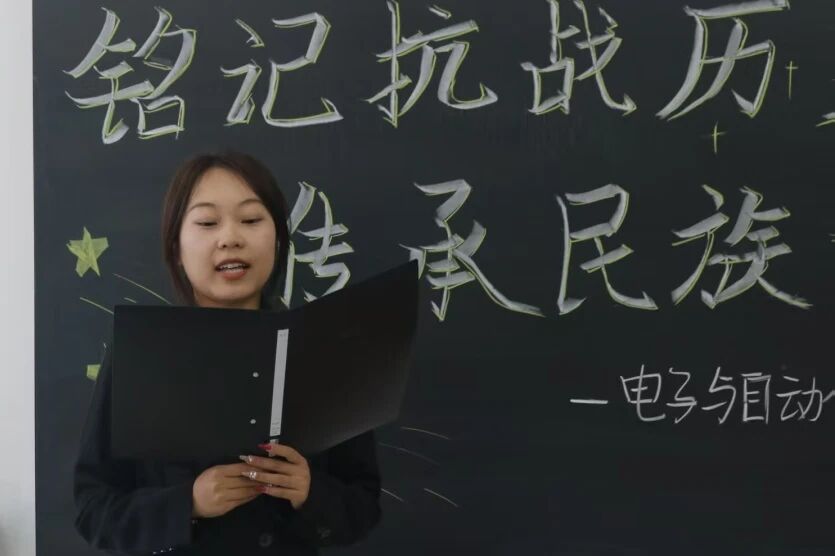 铭记抗战历
传承民族
—电子与自动